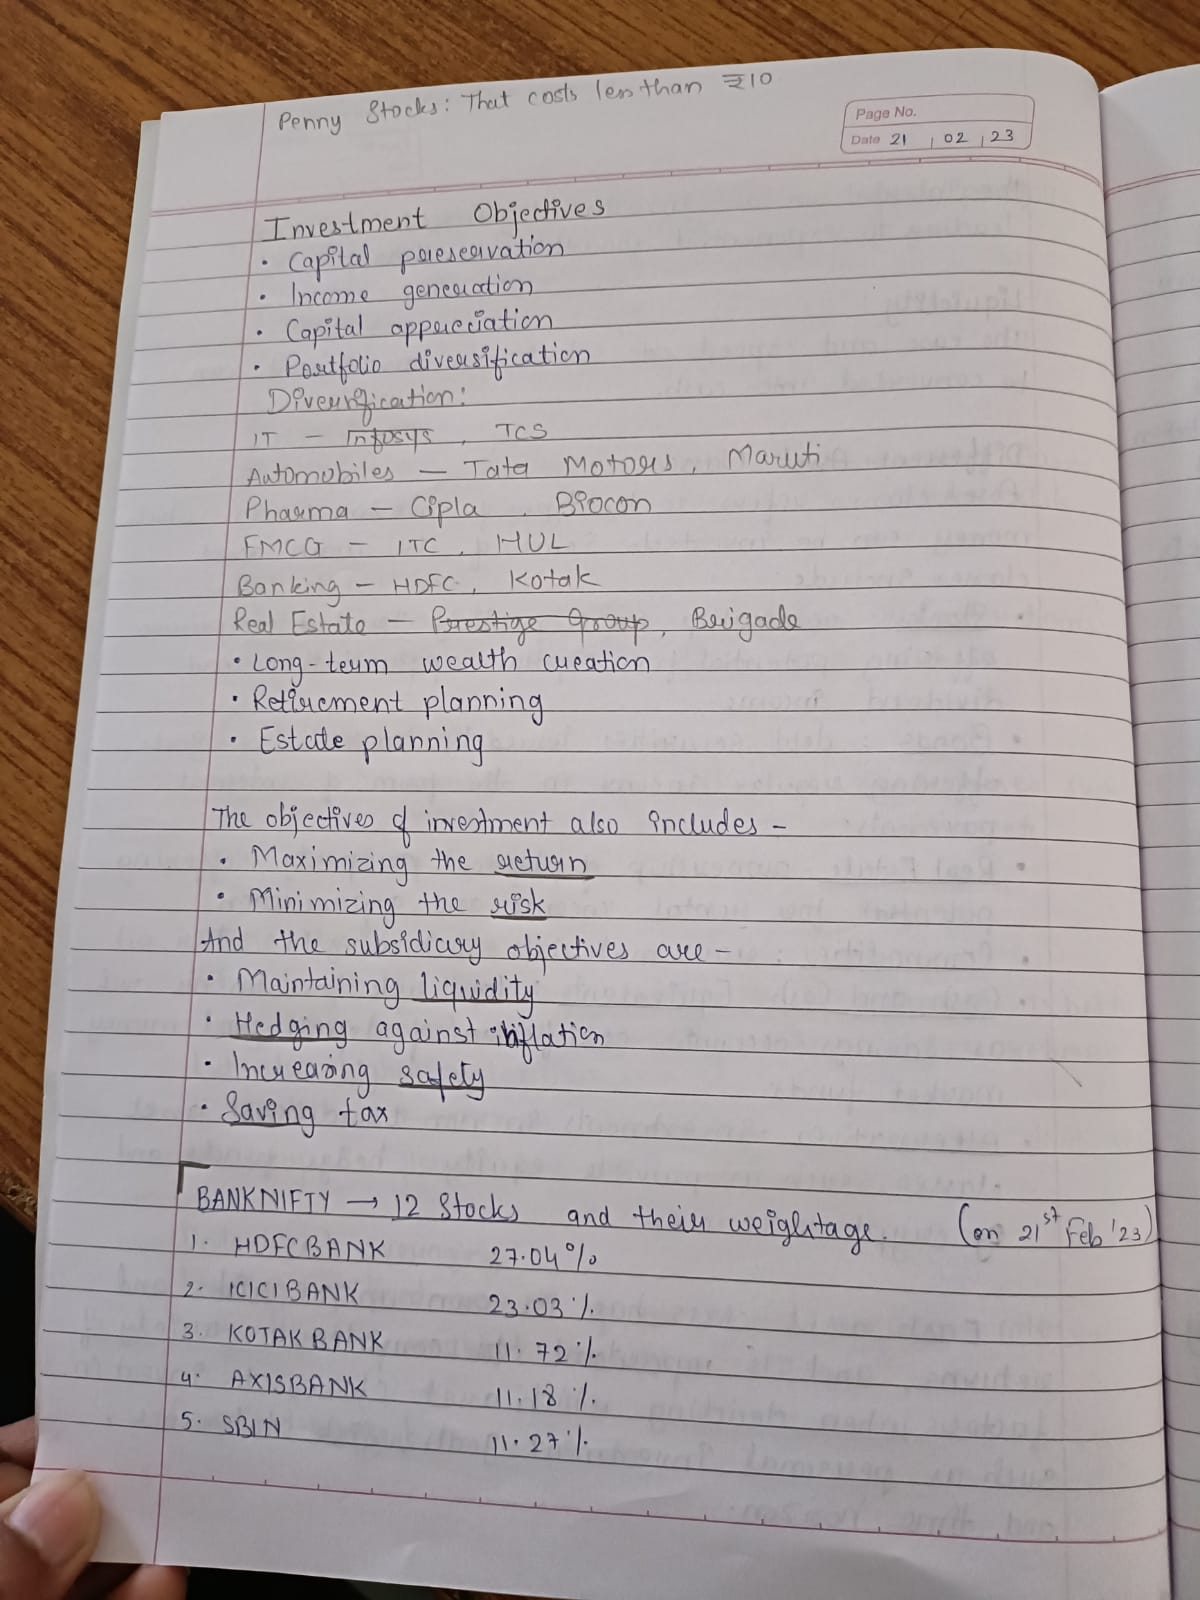 Penny Stocks: That costs less than ₹10
Page No.
Date 21 02 23
Investment Objectives
• Capital preservation
• Income generation
• Capital appreciation
• Portfolio diversification
Diversification:
IT – Infosys, TCS
Automobiles – Tata Motors, Maruti
Pharma – Cipla, Biocon
FMCG – ITC, HUL
Banking – HDFC, Kotak
Real Estate – Prestige Group, Brigade
• Long-term wealth creation
• Retirement planning
• Estate planning
The objectives of investment also includes –
• Maximizing the return
• Minimizing the risk
And the subsidiary objectives are –
• Maintaining liquidity
• Hedging against inflation
• Increasing safety
• Saving tax
BANKNIFTY → 12 Stocks and their weightage. (on 21st Feb '23)
1. HDFCBANK 27.04%
2. ICICIBANK 23.03%
3. KOTAKBANK 11.72%
4. AXISBANK 11.18%
5. SBIN 11.27%